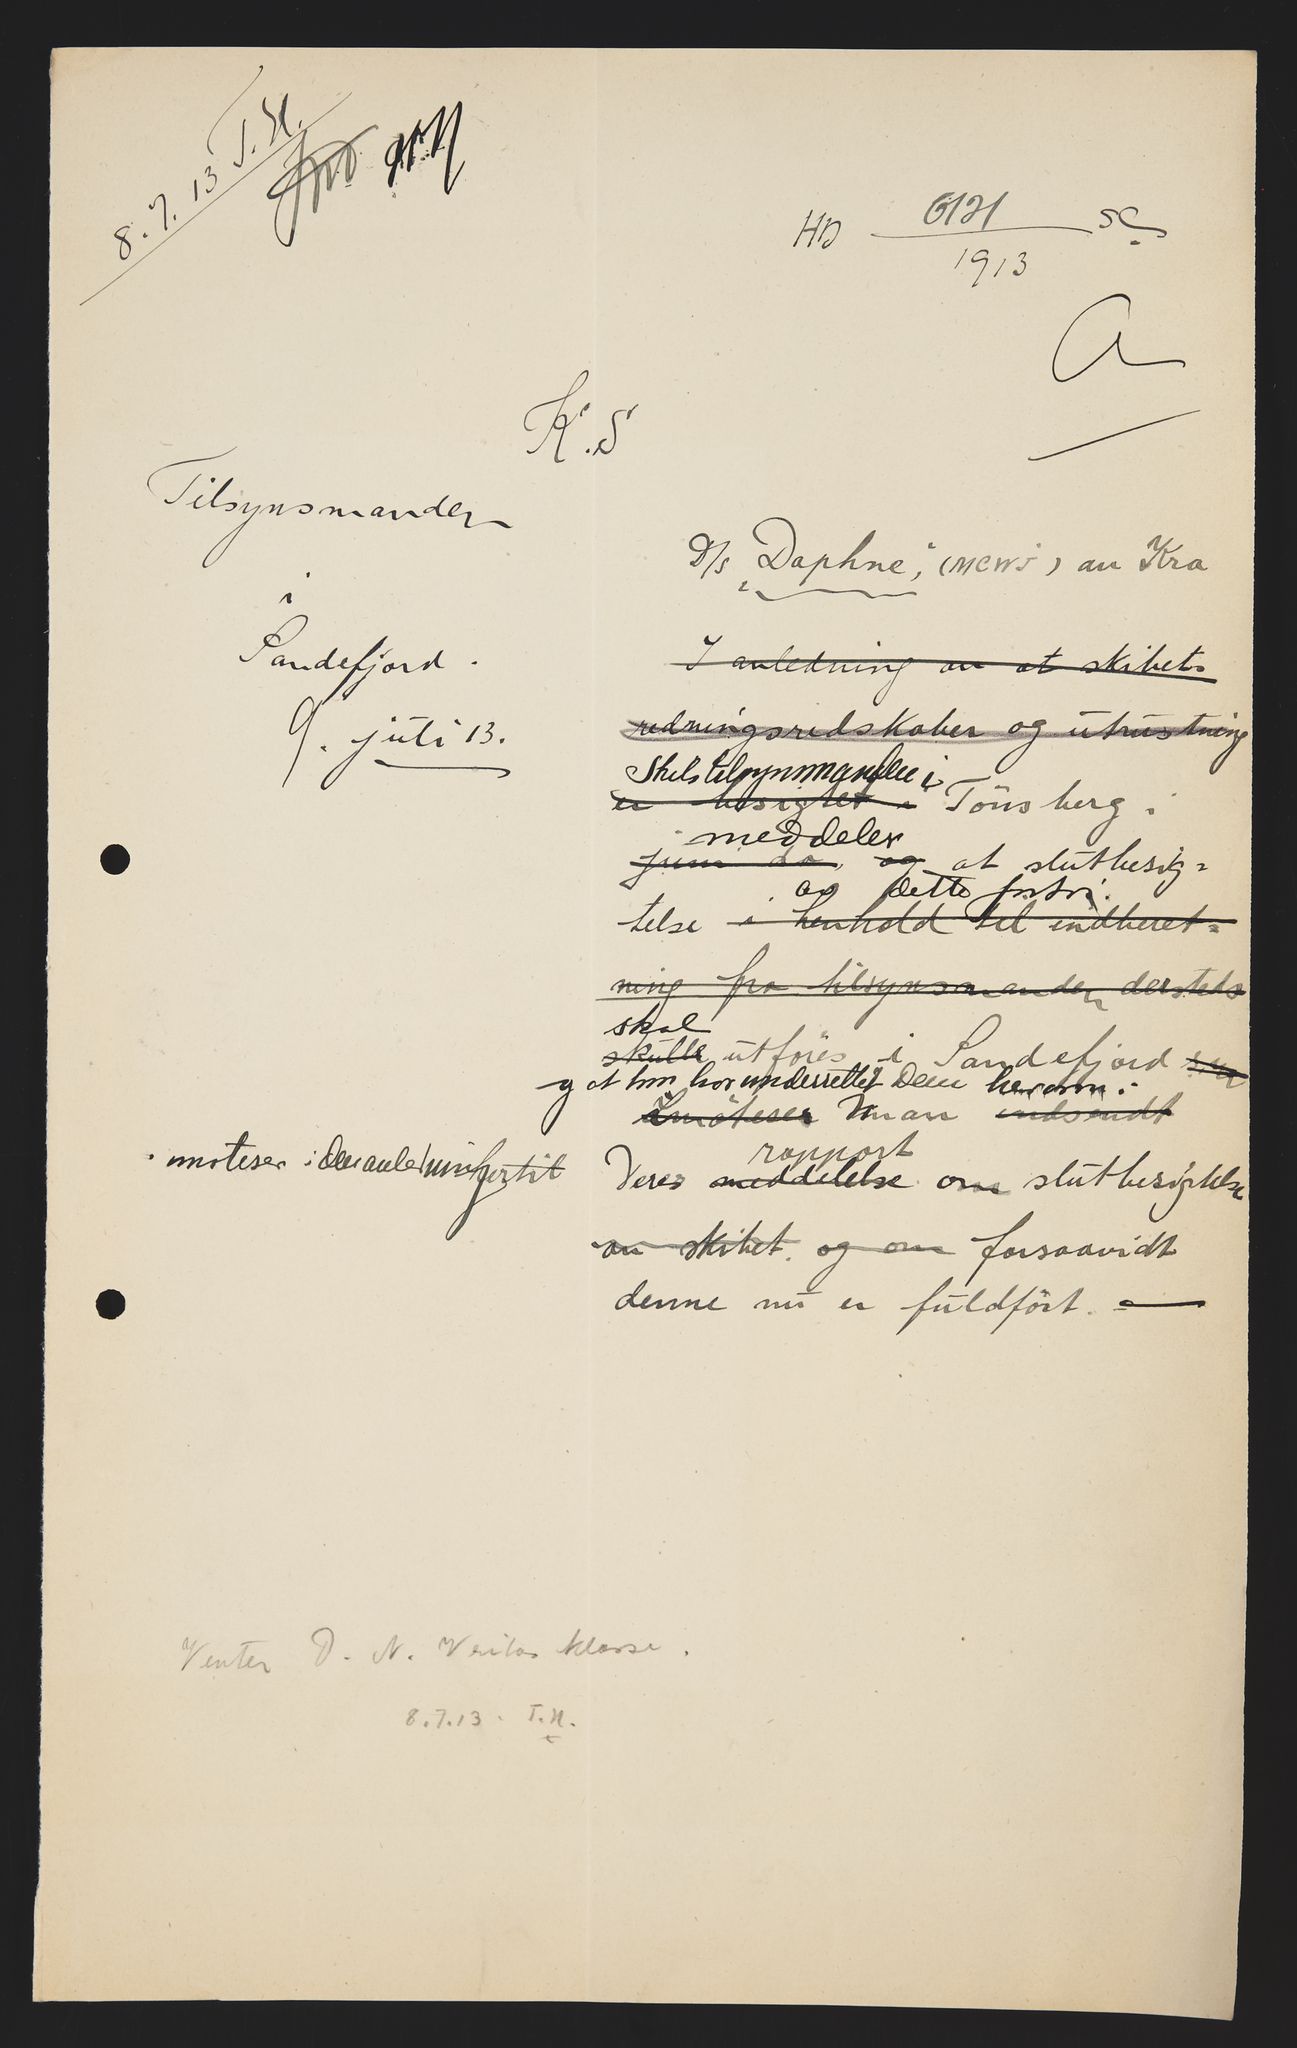 8.7.13 T.H.
HD 6121 SC
1913
A
K.S
Tilsynsmanden
i
Sandefjord.
9. juli 13.
D/s "Daphne", (MCWJ) av Kra
I anledning av at skibets
redningsredskaber og utrustning
Skibstilsynsmanden i
er besigtet i Tönsberg i
meddeler
juni og at slutbesig=
av dette
telse i henhold til indberet=
ning fra tilsynsmanden dersteds
skal
skulle utföres i Sandefjord
og at han har underrettet Dem herom.
imøteser man indsendt
imøteser i den anledning
rapport
Deres meddelelse om slutbesigtelse
av skibet og om forsaavidt
denne nu er fuldfört. —
Venter D. N. Veritas klasse.
8.7.13. T.H.